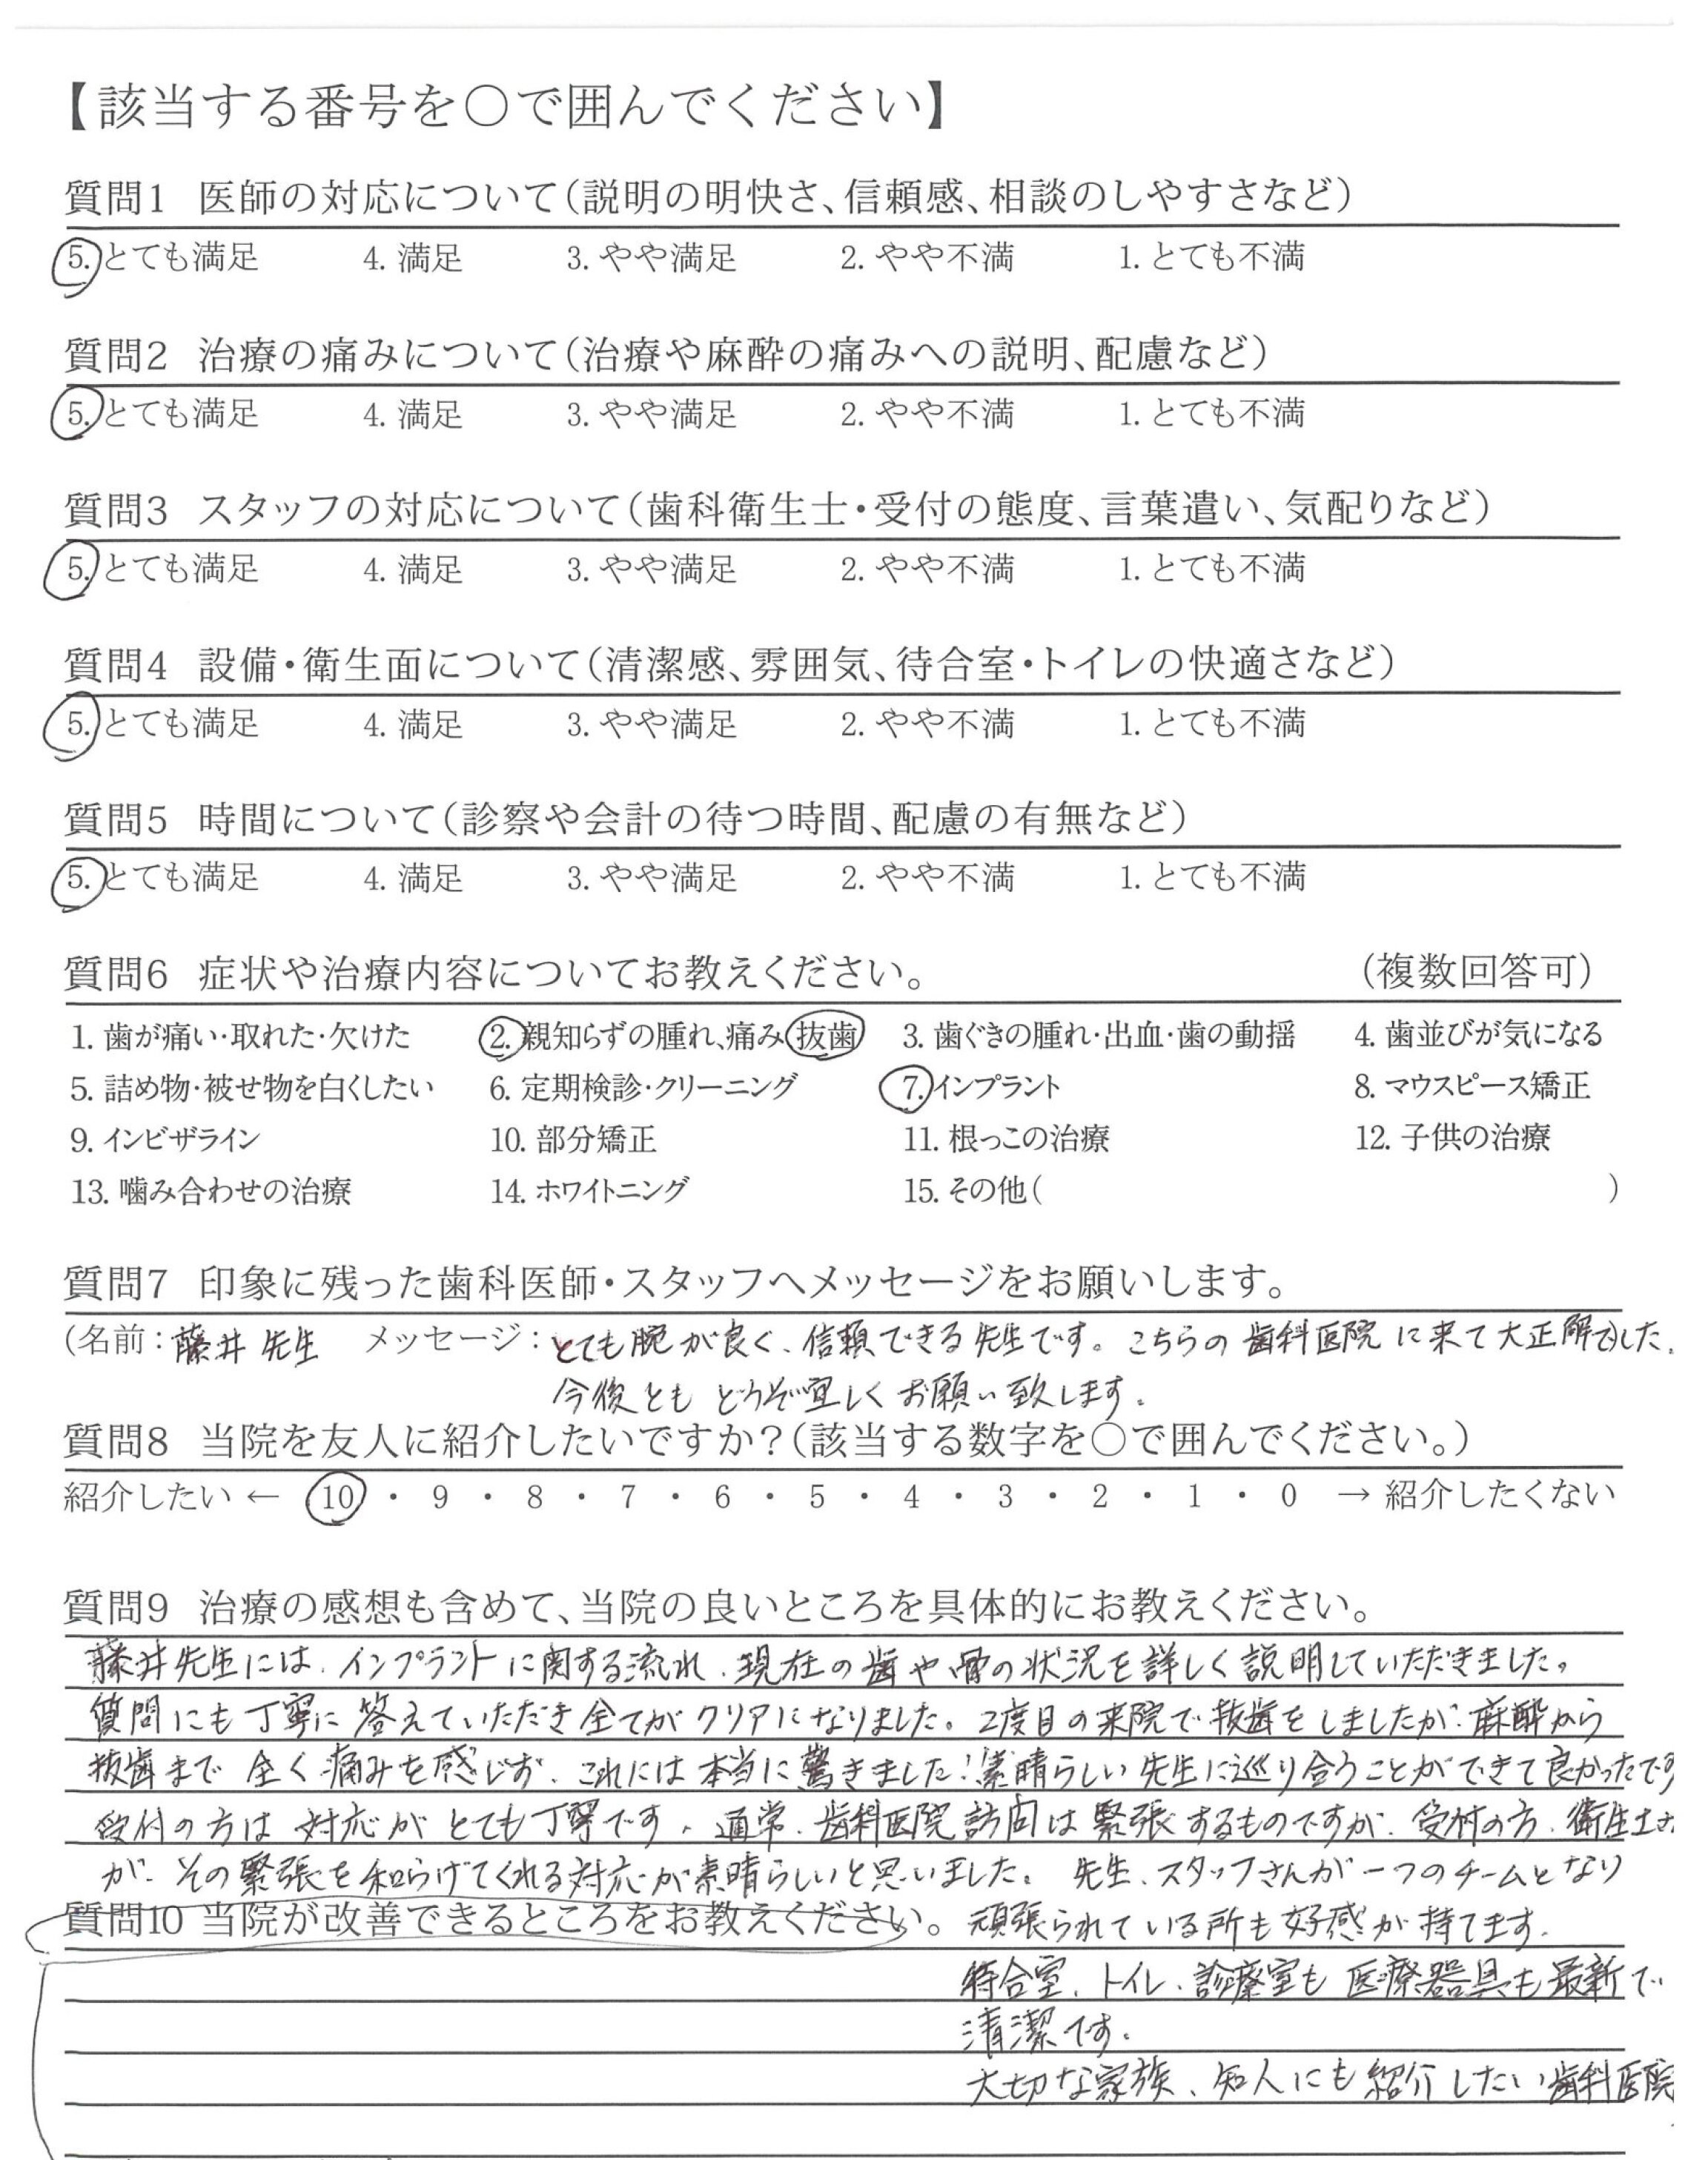 【該当する番号を○で囲んでください】
質問1 医師の対応について(説明の明快さ、信頼感、相談のしやすさなど)
5. とても満足 4. 満足 3. やや満足 2. やや不満 1. とても不満
質問2 治療の痛みについて(治療や麻酔の痛みへの説明、配慮など)
5. とても満足 4. 満足 3. やや満足 2. やや不満 1. とても不満
質問3 スタッフの対応について(歯科衛生士・受付の態度、言葉遣い、気配りなど)
5. とても満足 4. 満足 3. やや満足 2. やや不満 1. とても不満
質問4 設備・衛生面について(清潔感、雰囲気、待合室・トイレの快適さなど)
5. とても満足 4. 満足 3. やや満足 2. やや不満 1. とても不満
質問5 時間について(診察や会計の待つ時間、配慮の有無など)
5. とても満足 4. 満足 3. やや満足 2. やや不満 1. とても不満
質問6 症状や治療内容についてお教えください。 (複数回答可)
1. 歯が痛い・取れた・欠けた 2. 親知らずの腫れ、痛み 抜歯 3. 歯ぐきの腫れ・出血・歯の動揺 4. 歯並びが気になる
5. 詰め物・被せ物を白くしたい 6. 定期検診・クリーニング 7. インプラント 8. マウスピース矯正
9. インビザライン 10. 部分矯正 11. 根っこの治療 12. 子供の治療
13. 噛み合わせの治療 14. ホワイトニング 15. その他( )
質問7 印象に残った歯科医師・スタッフへメッセージをお願いします。
(名前:藤井 先生 メッセージ:とても腕が良く、信頼できる先生です。こちらの歯科医院に来て大正解でした。
今後とも どうぞ宜しくお願い致します。
質問8 当院を友人に紹介したいですか?(該当する数字を○で囲んでください。)
紹介したい ← 10 ・ 9 ・ 8 ・ 7 ・ 6 ・ 5 ・ 4 ・ 3 ・ 2 ・ 1 ・ 0 → 紹介したくない
質問9 治療の感想も含めて、当院の良いところを具体的にお教えください。
藤井先生には、インプラントに関する流れ、現在の歯や骨の状況を詳しく説明していただきました。
質問にも丁寧に答えていただき全てがクリアになりました。2度目の来院で抜歯をしましたが、麻酔から
抜歯まで 全く痛みを感じず、これには本当に驚きました!素晴らしい先生に巡り合うことができて良かったです
受付の方は 対応が とても丁寧です。通常、歯科医院訪問は緊張するものですが、受付の方、衛生士さ
が、その緊張を和らげてくれる対応が素晴らしいと思いました。先生、スタッフさんが一つのチームとなり
質問10 当院が改善できるところをお教えください。頑張られている所も好感が持てます。
待合室、トイレ、診療室も医療器具も最新で、
清潔です。
大切な家族、知人にも紹介したい歯科医院